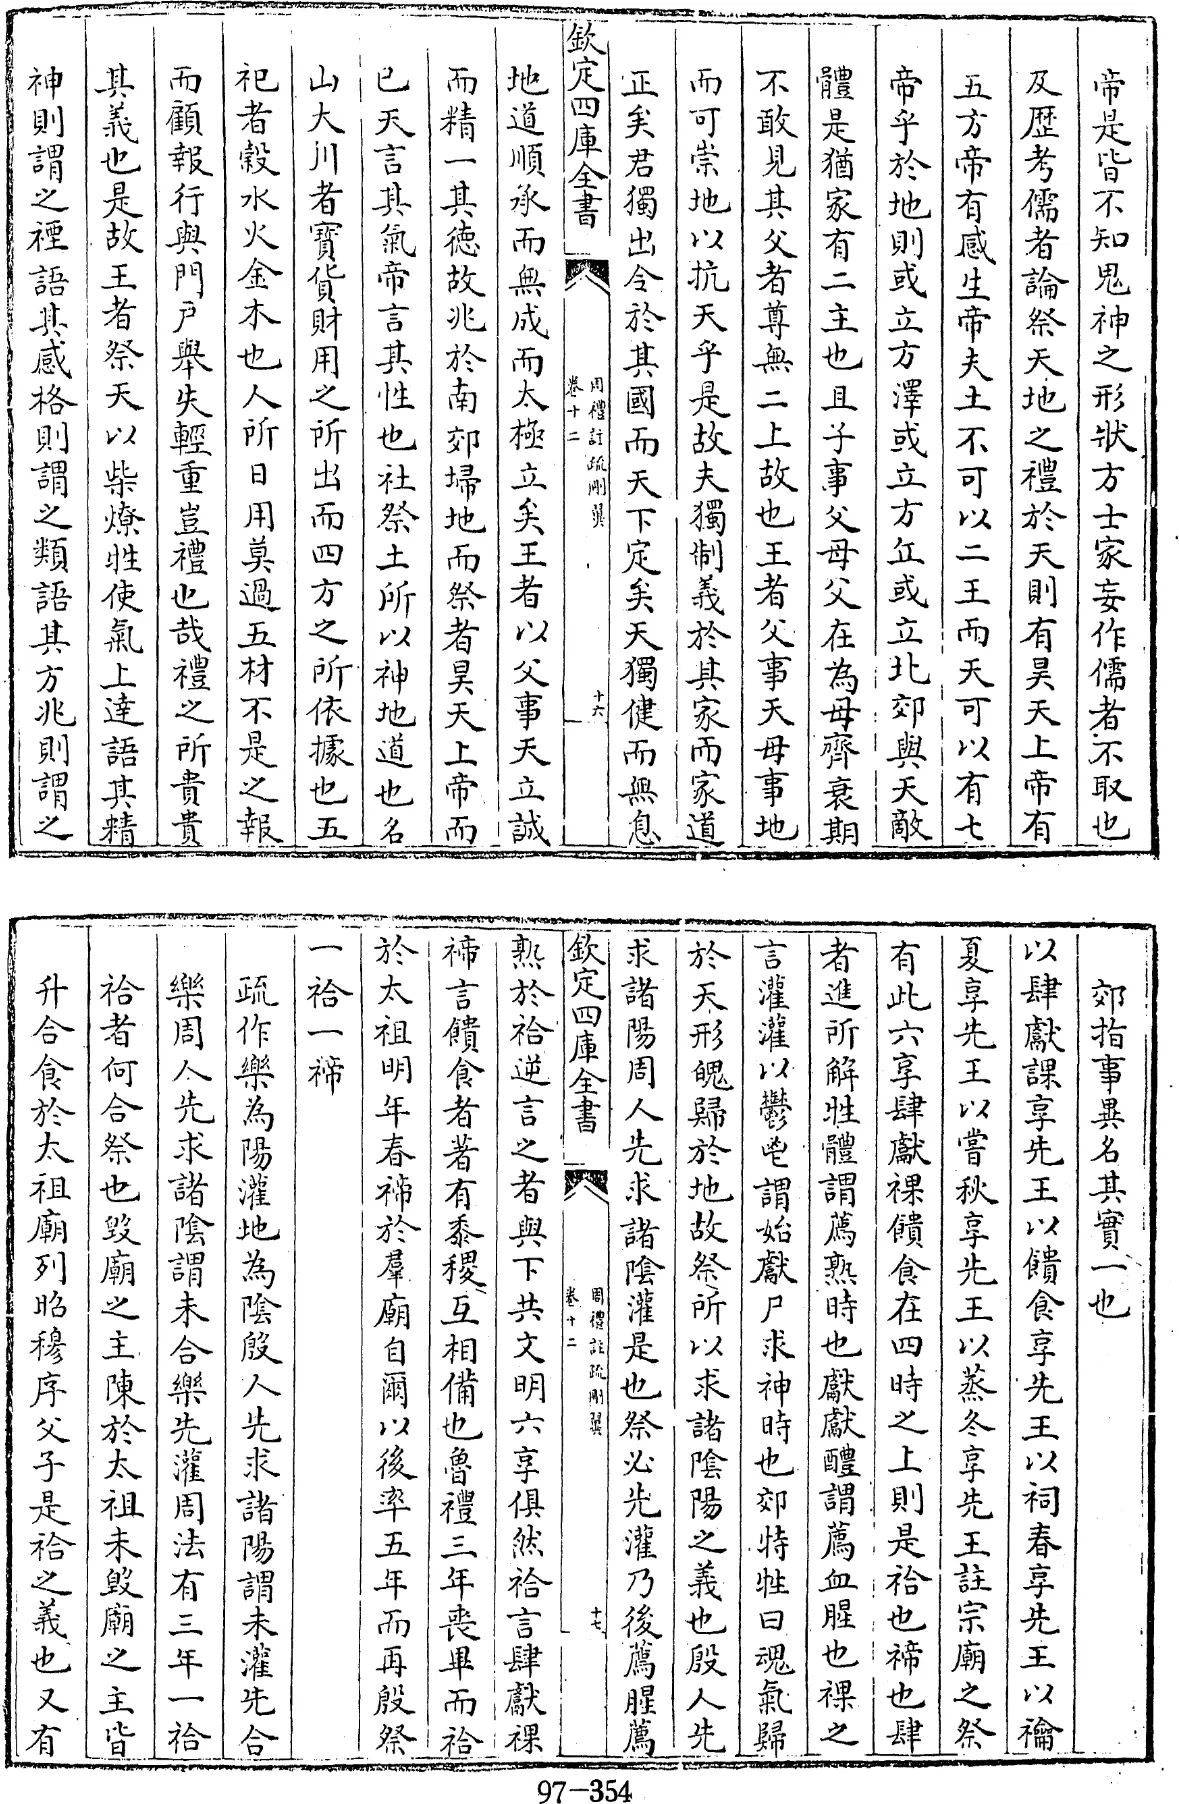 帝是皆不知鬼神之形狀方士家妄作儒者不取也
及歷考儒者論祭天地之禮於天則有昊天上帝有
五方帝有感生帝夫土不可以二王而天可以有七
帝乎於地則或立方澤或立方丘或立北郊與天敵
體是猶家有二主也且子事父母父在為母齊衰期
不敢見其父者尊無二上故也王者父事天母事地
而可崇地以抗天乎是故夫獨制義於其家而家道
正矣君獨出令於其國而天下定矣天獨健而無息
欽定四庫全書
周禮註疏刪翼
卷十二
十六
地道順承而無成而太極立矣王者以父事天立誠
而精一其德故兆於南郊埽地而祭者昊天上帝而
已天言其氣帝言其性也社祭土所以神地道也名
山大川者寶貨財用之所出而四方之所依據也五
祀者穀水火金木也人所日用莫過五材不是之報
而顧報行與門戶舉失輕重豈禮也哉禮之所貴貴
其義也是故王者祭天以柴燎牲使氣上達語其精
神則謂之禋語其感格則謂之類語其方兆則謂之
郊指事異名其實一也
以肆獻課享先王以饋食享先王以祠春享先王以禴
夏享先王以嘗秋享先王以蒸冬享先王註宗廟之祭
有此六享肆獻祼饋食在四時之上則是祫也禘也肆
者進所解牲體謂薦熟時也獻獻醴謂薦血腥也祼之
言灌灌以鬱鬯謂始獻尸求神時也郊特牲曰魂氣歸
於天形魄歸於地故祭所以求諸陰陽之義也殷人先
求諸陽周人先求諸陰灌是也祭必先灌乃後薦腥薦
欽定四庫全書
周禮註疏刪翼
卷十二
十七
熟於祫逆言之者與下共文明六享俱然祫言肆獻祼
禘言饋食者著有黍稷互相備也魯禮三年喪畢而祫
於太祖明年春禘於羣廟自爾以後率五年而再殷祭
一祫一禘
疏作樂為陽灌地為陰殷人先求諸陽謂未灌先合
樂周人先求諸陰謂未合樂先灌周法有三年一祫
祫者何合祭也毀廟之主陳於太祖未毀廟之主皆
升合食於太祖廟列昭穆序父子是祫之義也又有
97-354